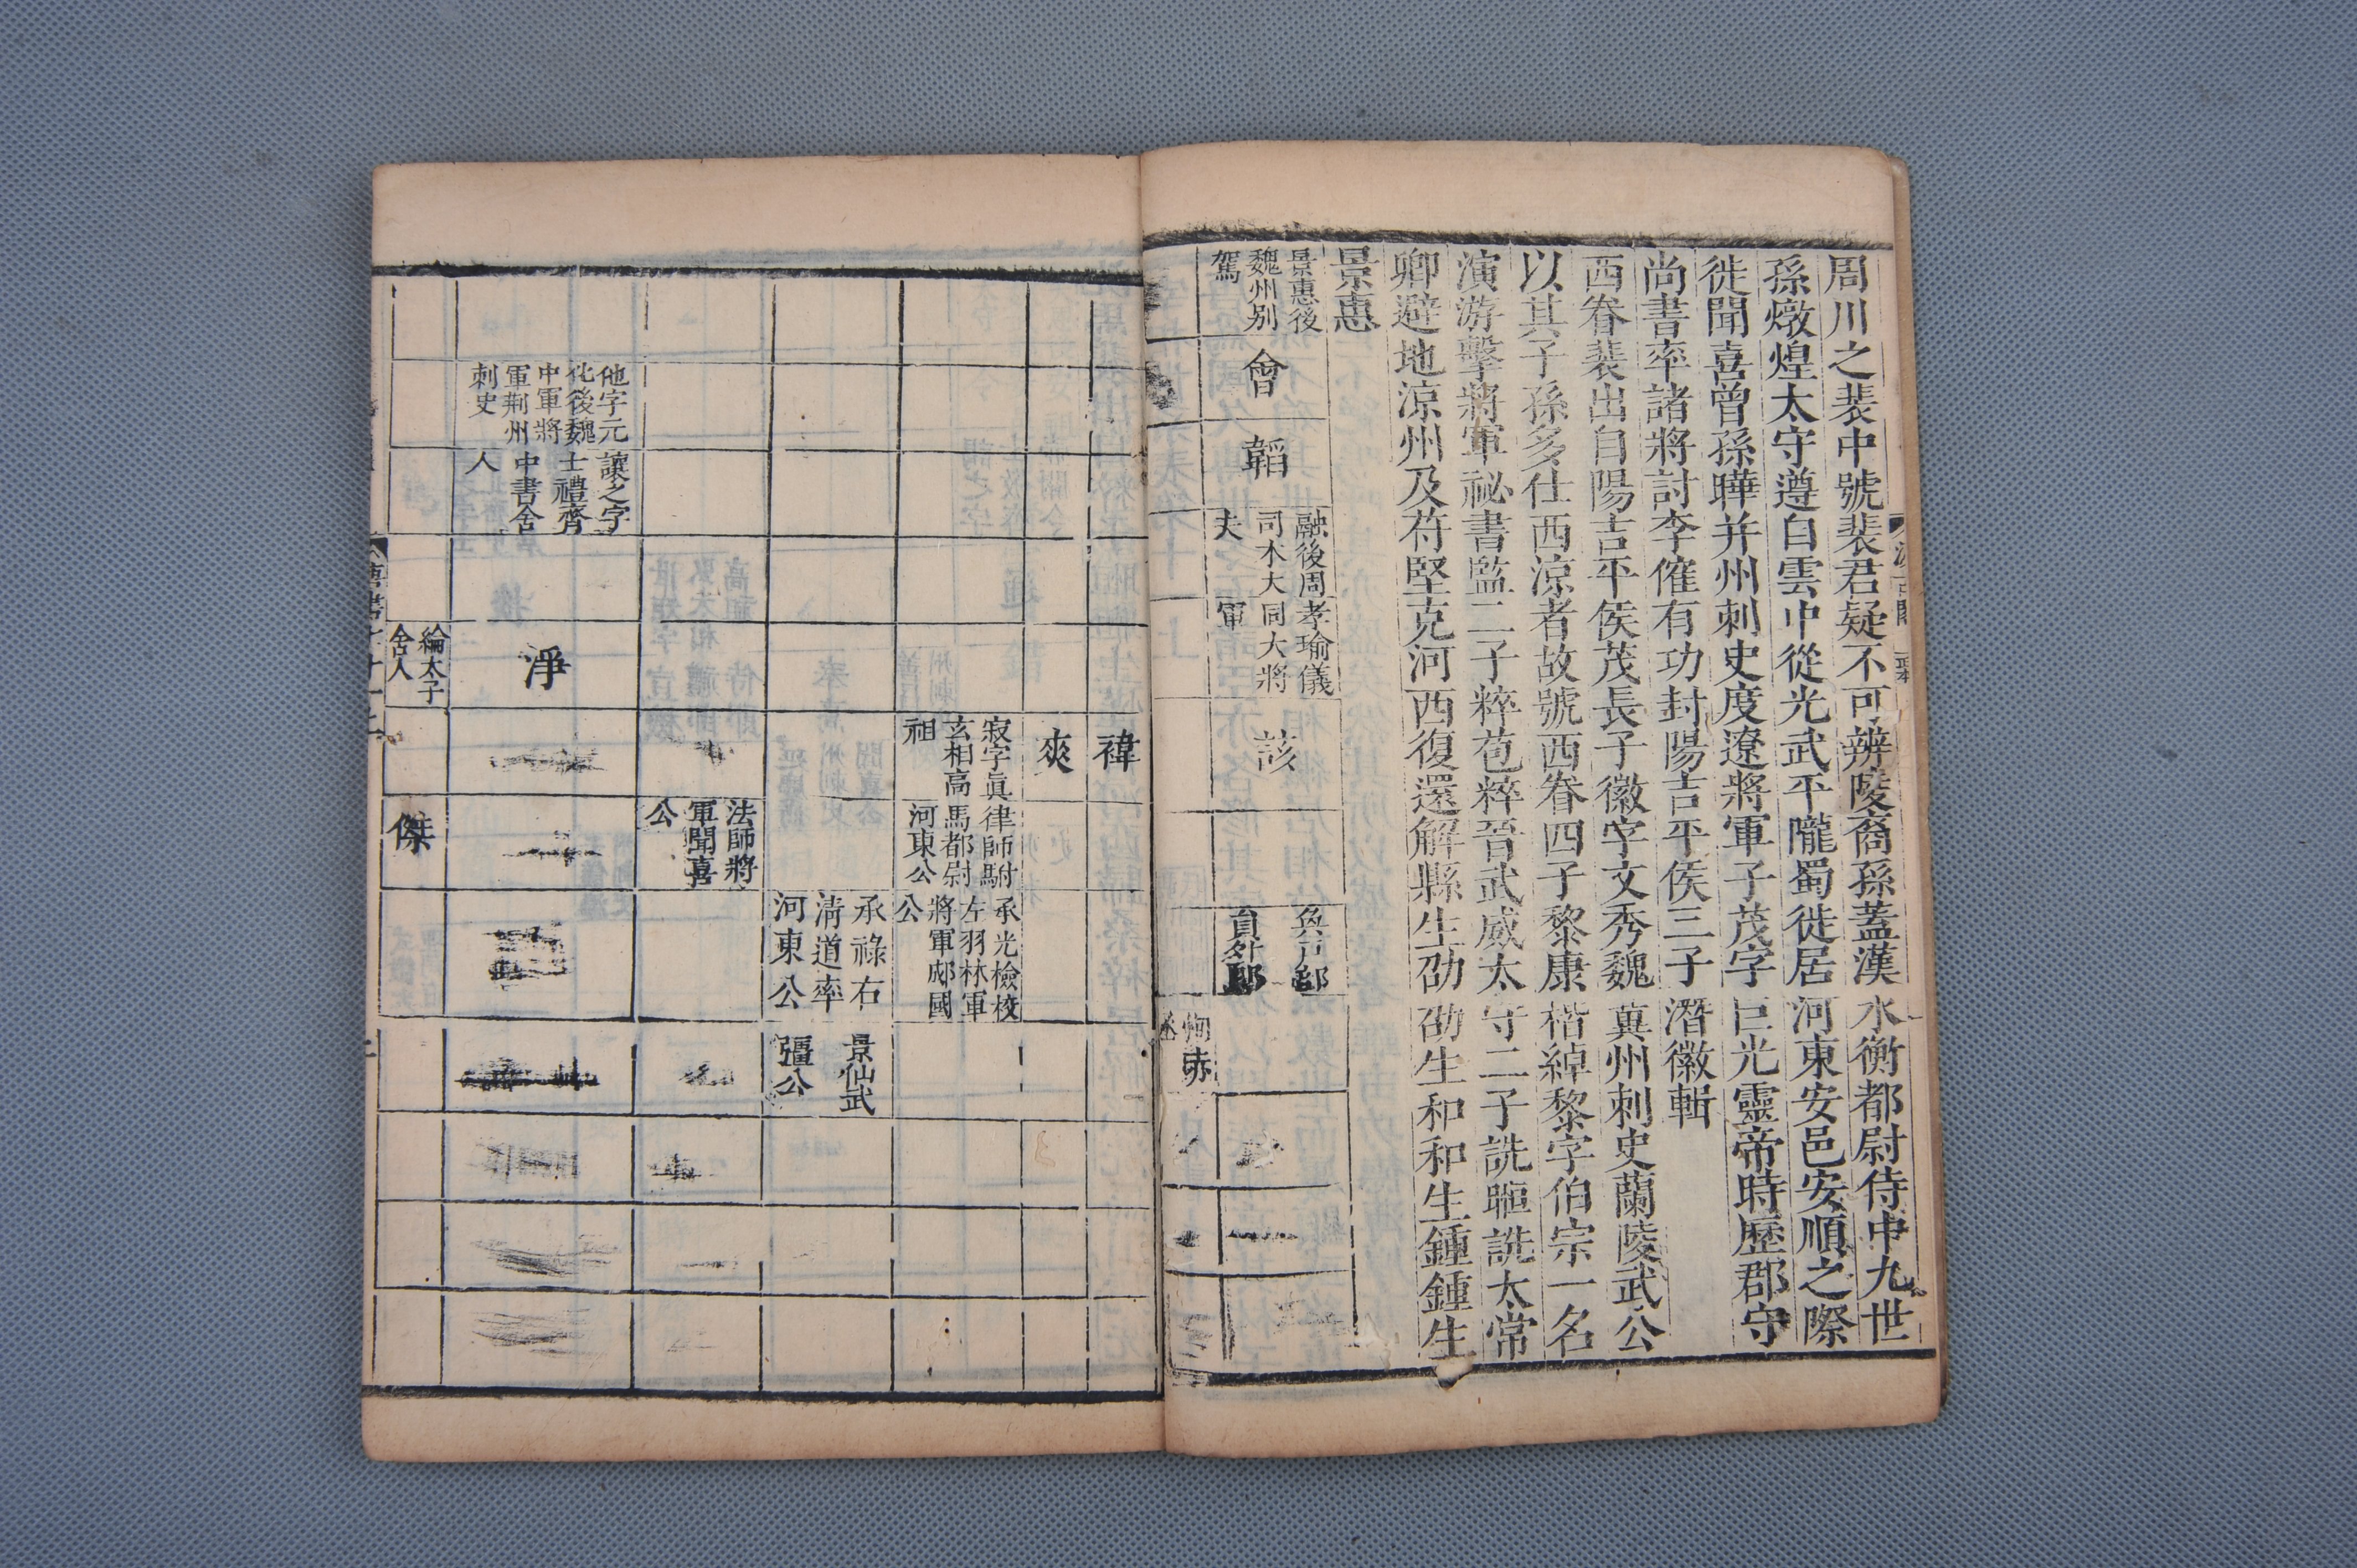 周川之裴中號裴君疑不可辨陵裔孫蓋漢水衡都尉侍中九世
孫燉煌太守遵自雲中從光武平隴蜀徙居河東安邑安順之際
徙聞喜曾孫曄并州刺史度遼將軍子茂字巨光靈帝時歷郡守
尚書率諸將討李傕有功封陽吉平侯三子潛徽輯
西眷裴出自陽吉平侯茂長子徽字文秀魏冀州刺史蘭陵武公
以其子孫多仕西涼者故號西眷四子黎康楷綽黎字伯宗一名
演游擊將軍祕書監二子粹苞粹晉武威太守二子詵暅詵太常
卿避地涼州及苻堅克河西復還解縣生劭劭生和和生鍾鍾生
景惠
景惠後
魏州别
駕
會
韜
融後周
司木大
夫
孝瑜儀
同大將
軍
該
禕
爽
寂字眞
玄相高
祖
律師駙
馬都尉
河東公
承光檢校
左羽林軍
將軍郕國
公
承祿右
清道率
河東公
景仙武
彊公
法師將
軍聞喜
公
他字元
化後魏
中軍將
軍荆州
刺史
讓之字
士禮齊
中書舍
人
淨
綸太子
舍人
傑